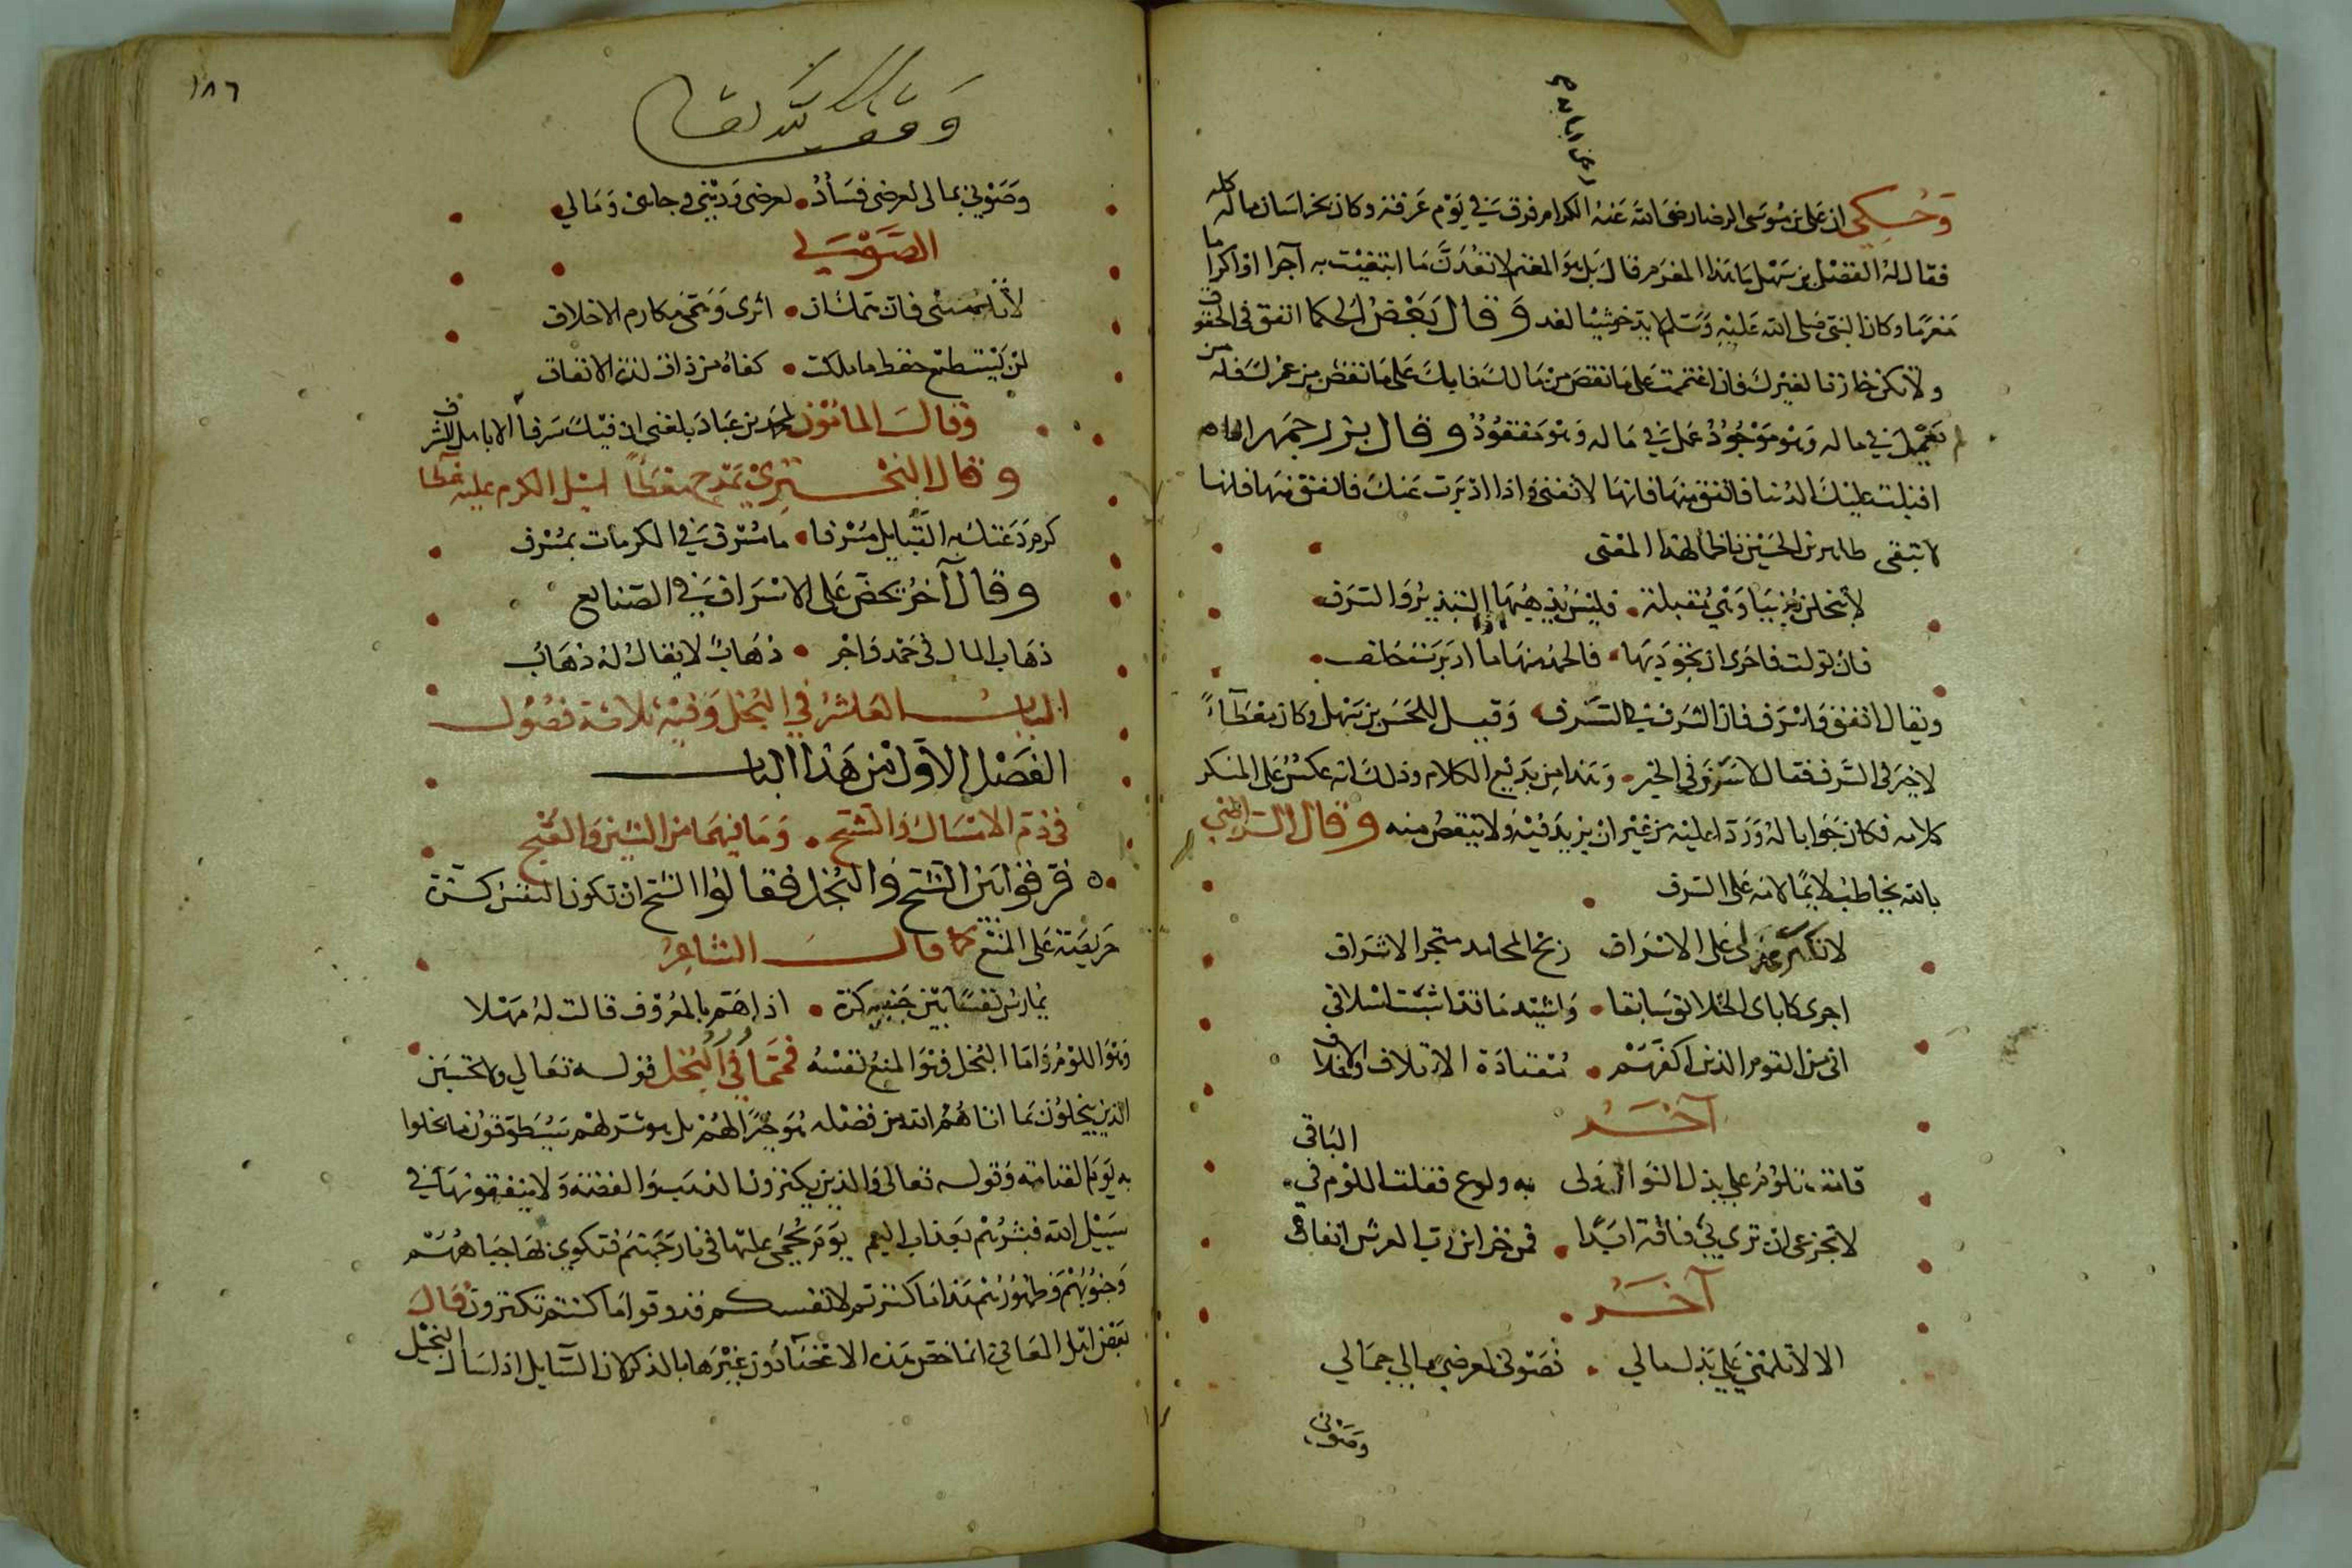 وَحُكِي ان علي بن موسى الرضا رضي الله عَنهُ الكرام فرق في يَوْم عَرَفة وكان بخراسان ماله كله
فقال له الفضل بن سَهْل ما هذا المغرم فقال بَل هوَ المغنم لا تعُدَّنّ مَا ابتغيْت به آجرا او اكراما
مَغرَمًا وكان النبي صَلى الله عَليْهِ وَسَلم لا يدّخر شيئا لغد وَقال بَعْضُ الحكما انفق في الحقوق
ولا تكن خازنا لغيرك فان اغتممت على مَا نقص من مَالك فابك على مَا نقص من عمرك فان من
لم يَعْمَل في ماله وَهو مَوْجُودٌ عمل في مَاله وَهو مَفقوُدٌ وقال بزرجمهر اذا
اقبلت عليْكَ الدُنيا فانفق منهَا فانهَا لا تفنى وَاذا ادْبَرت عَنك فانفق منهَا فانها
لا تبقى طاهر بن الحُسَيْن ناظما لهذا المعْنى
لا تبخلن بدنيَا وَهْيَ مُقبلة • فليْسَ يُذهِبُهَا التبذيرُ وَالسَرف
فان تولت فاحرى ان تجود بهَا • فالحمد منهَا اذا ما ادبرَت خلف
ويقال انفق وَاسْرَف فان الشرف في السَّرف وَقيل للحَسَن بن سَهل وكان معطآءً
لا خير في السَّرف فقال لا سَرَفَ في الخير • وَهذا من بَديْع الكلام وذلك انه عكسٌ على المنكر
كلامه فكان جَوابا لهُ وَرَدّا عليْه من غير ان يزيدَ فيْه ولا ينقصُ منه وقال الراضي
بالله يخاطبُ لائمًا لامه على السرف
لا تكثرن عذلي على الاسْراف ربح المحامد متجر الاشراف
اجري كاباي الخلائق سَابقا • وَاشيّد مَا قد اسّسَت اسْلافي
اني من القوم الذين اكفهُمْ • مُعْتادَة الاتلاف والاخلاف
آخَــر
قامت تلوُمُ على بذل النوال ولى به ولوع فقلت اللوْم في الباقي
لا تجزعى ان تري بي فاقة ابَدًا • فمن خزائن رب العرش انفاق
آخَــر
الا لا تلمني على بَذل مالي • فصَوْني لعرضي بمالي جمَالي
وصَوْني
١٨٦
وَقف لله تعالى
وَصَوْني بمالى لعرضى فسَادٌ • لعرضى وَدِيْني وجاهي وَمَالي
الصَّوْلي
اثرى وَتمّت مكارم الاخلاق
لن يَسْتطيع حفظ ما ملكت • كفاهُ من ذاق لذة الانفاق
وَقالَ المامُون لمحمد بن عبَاد بلغني ان فيْكَ سَرفا
وقال البُحْــتريْ يمَدح معْطًا اسْبَل الكرم عليه غطا
كرم دَعتك به القبَايل مُسْرفا • ما مُسْرف في المكرمات بمُسْرف
وقال آخرُ يحضّ على الاسْرَاف في الصَنايع
ذهَاب المال في حَمْد وَاجْر • ذهَابٌ لا يقالُ لهُ ذهَابُ
البابُ العَاشرُ في البُخل وَفيْهِ ثلاثة فصُوُل
الفَصْل الاَوّل من هَذا البابْ
في ذمّ الامْسَاك وَالشح • وَمَا فيهمَا من الشين وَالقبْح
فرقوا بَيْن الشح وَالبُخل فقالوُا الشح ان تكون النفسُ كَزّة
حَريصَة على المنع كما قالَ الشاعِرُ
يُمارسُ نفسًا بَيْن جَنبيه كزة • اذا هَمّ بالمعْرُوْف قالت لهُ مَهْلا
وَهْوَ اللوْمُ وَامَا البُخل فهْوَ المنعُ نفسُهُ فممَّا ورد في البُخل قوله تعَالي ولا تحسَبَن
الذين يبْخلوُن بمَا اتاهُمْ الله من فضْله هُوَ خيْرًا لهُمْ بل هو شرّ لهْم سَيُطوّقوُن ما بخلوا
به يَوم القيامَة وَقوله تعالى وَالذين يكنزون الذهَبَ وَالفضة وَلا ينفقونهَا في
سَبيْل الله فبشرْهُم بعَذاب اليم يوْمَ يُحْمَى عليْها في نار جَهَنم فتكوى بهَا جبَاهُهُمْ
وَجنُوُبُهُمْ وَظهُورُهُم هذا مَا كنزتم لانفسكم فذوقوا مَا كنتم تكنزون قال
بعَض اهْل المعَاني انما خصّ هَذه الاعْضآ دُون غيْرهَا بالذكر لان السّايل اذا سَال البَخيْل